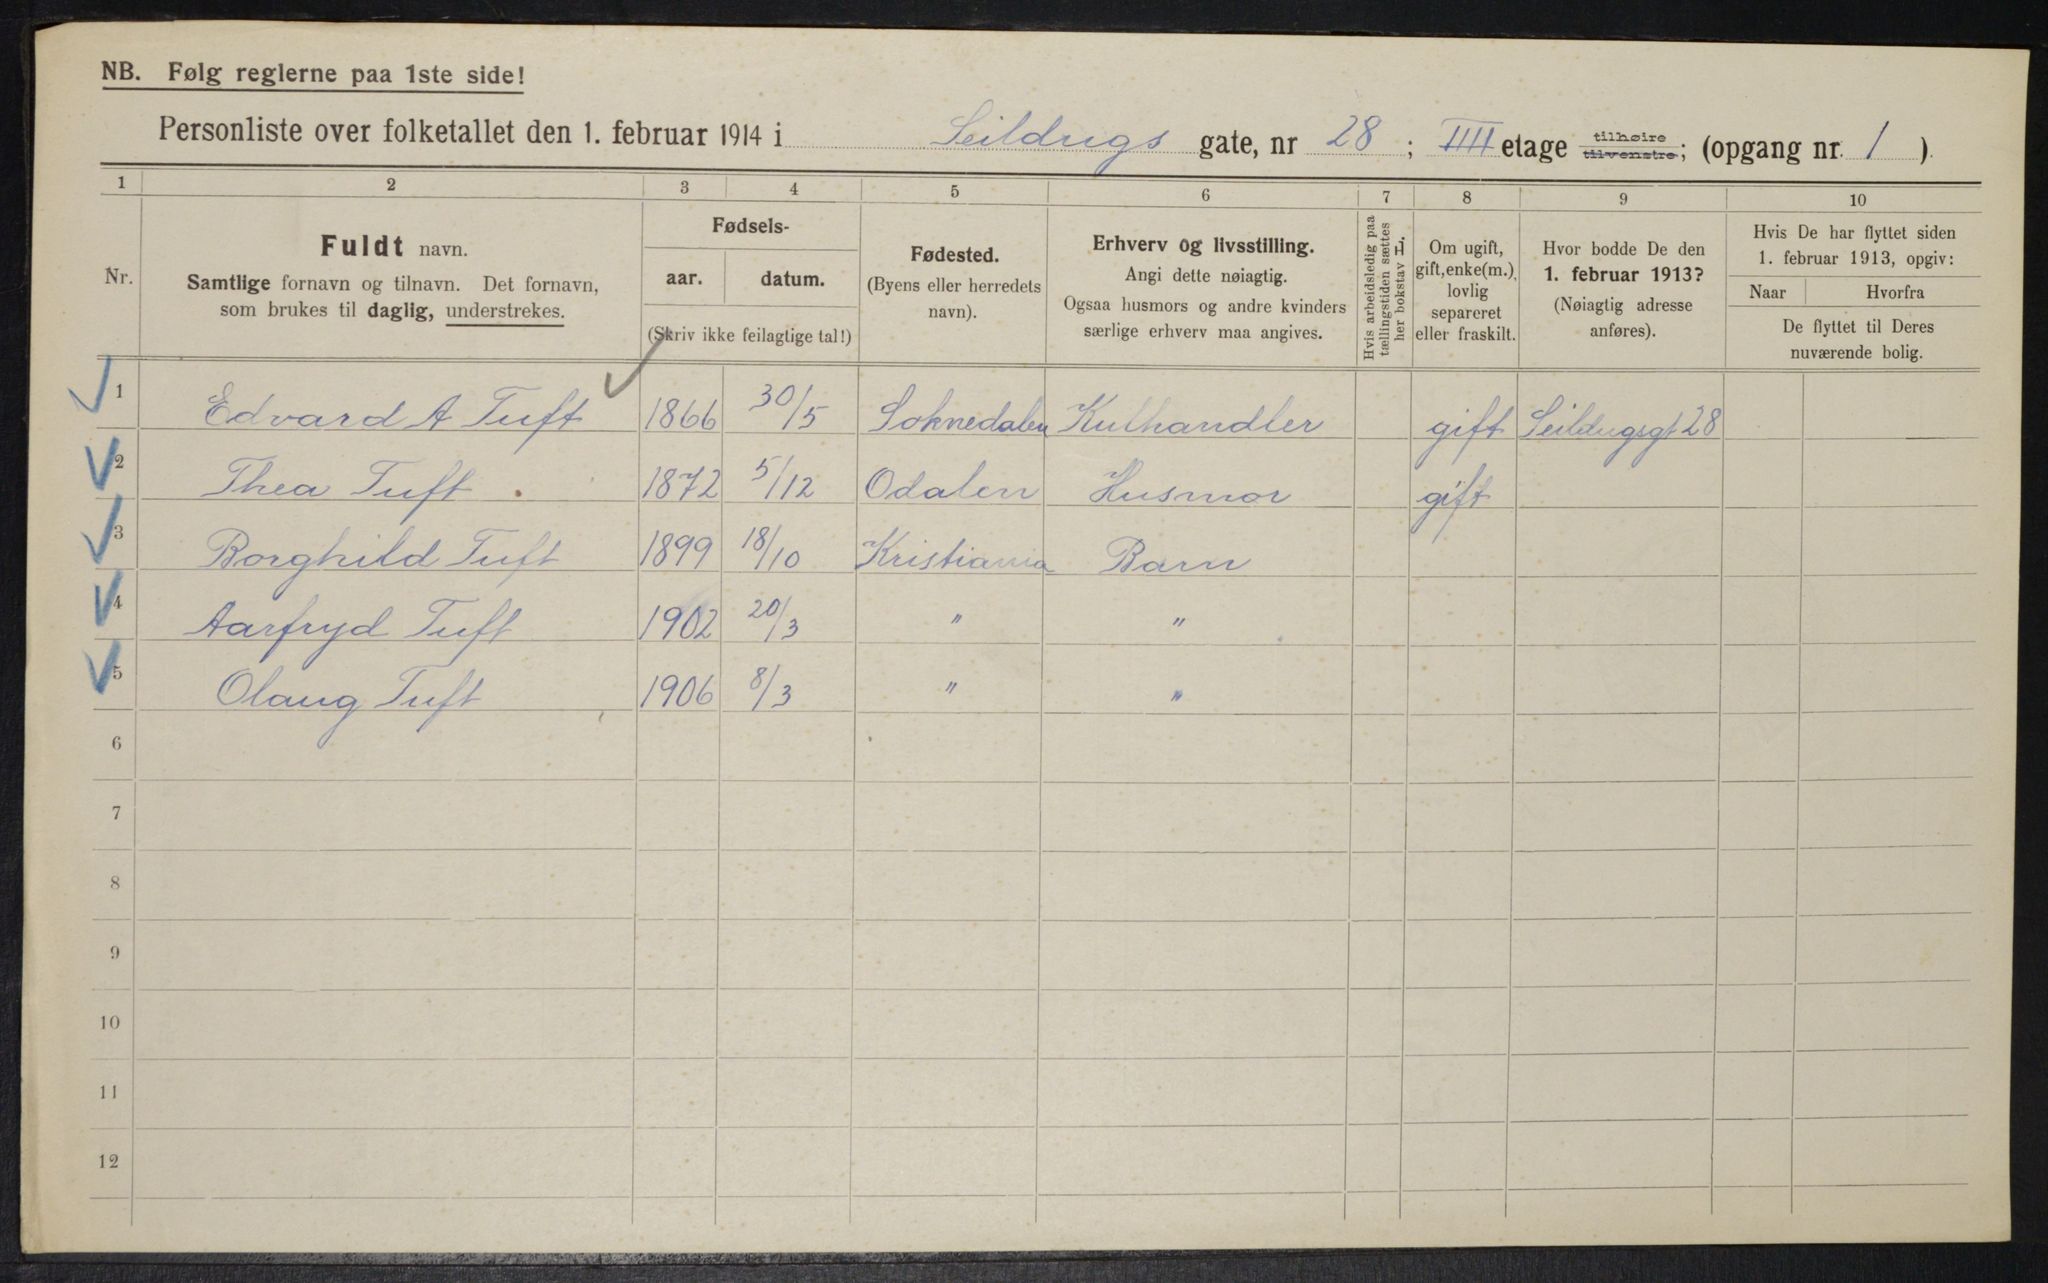 NB. Følg reglerne paa 1ste side!
Personliste over folketallet den 1. februar 1914 i Seildugs gate, nr 28; IIII etage tilhøire tilvenstre; (opgang nr. 1)
1 2 3 4 5 6 7 8 9 10
Nr.
Fuldt navn.
Samtlige fornavn og tilnavn. Det fornavn,
som brukes til daglig, understrekes.
Fødsels-
aar. datum.
(Skriv ikke feilagtige tal!)
Fødested.
(Byens eller herredets
navn).
Erhverv og livsstilling.
Angi dette nøiagtig.
Ogsaa husmors og andre kvinders
særlige erhverv maa angives.
Hvis arbeidsledig paa
tællingstiden sættes
her bokstav L.
Om ugift,
gift, enke(m.),
lovlig
separeret
eller fraskilt.
Hvor bodde De den
1. februar 1913?
(Nøiagtig adresse
anføres).
Hvis De har flyttet siden
1. februar 1913, opgiv:
Naar Hvorfra
De flyttet til Deres
nuværende bolig.
1 Edvard A Tuft 1866 30/5 Soknedalen Kulhandler gift Seildugsgt 28
2 Thea Tuft 1872 5/12 Odalen Husmor gift
3 Borghild Tuft 1899 18/10 Kristiania Barn
4 Aarfryd Tuft 1902 20/3 " "
5 Olaug Tuft 1906 8/3 " "
6
7
8
9
10
11
12